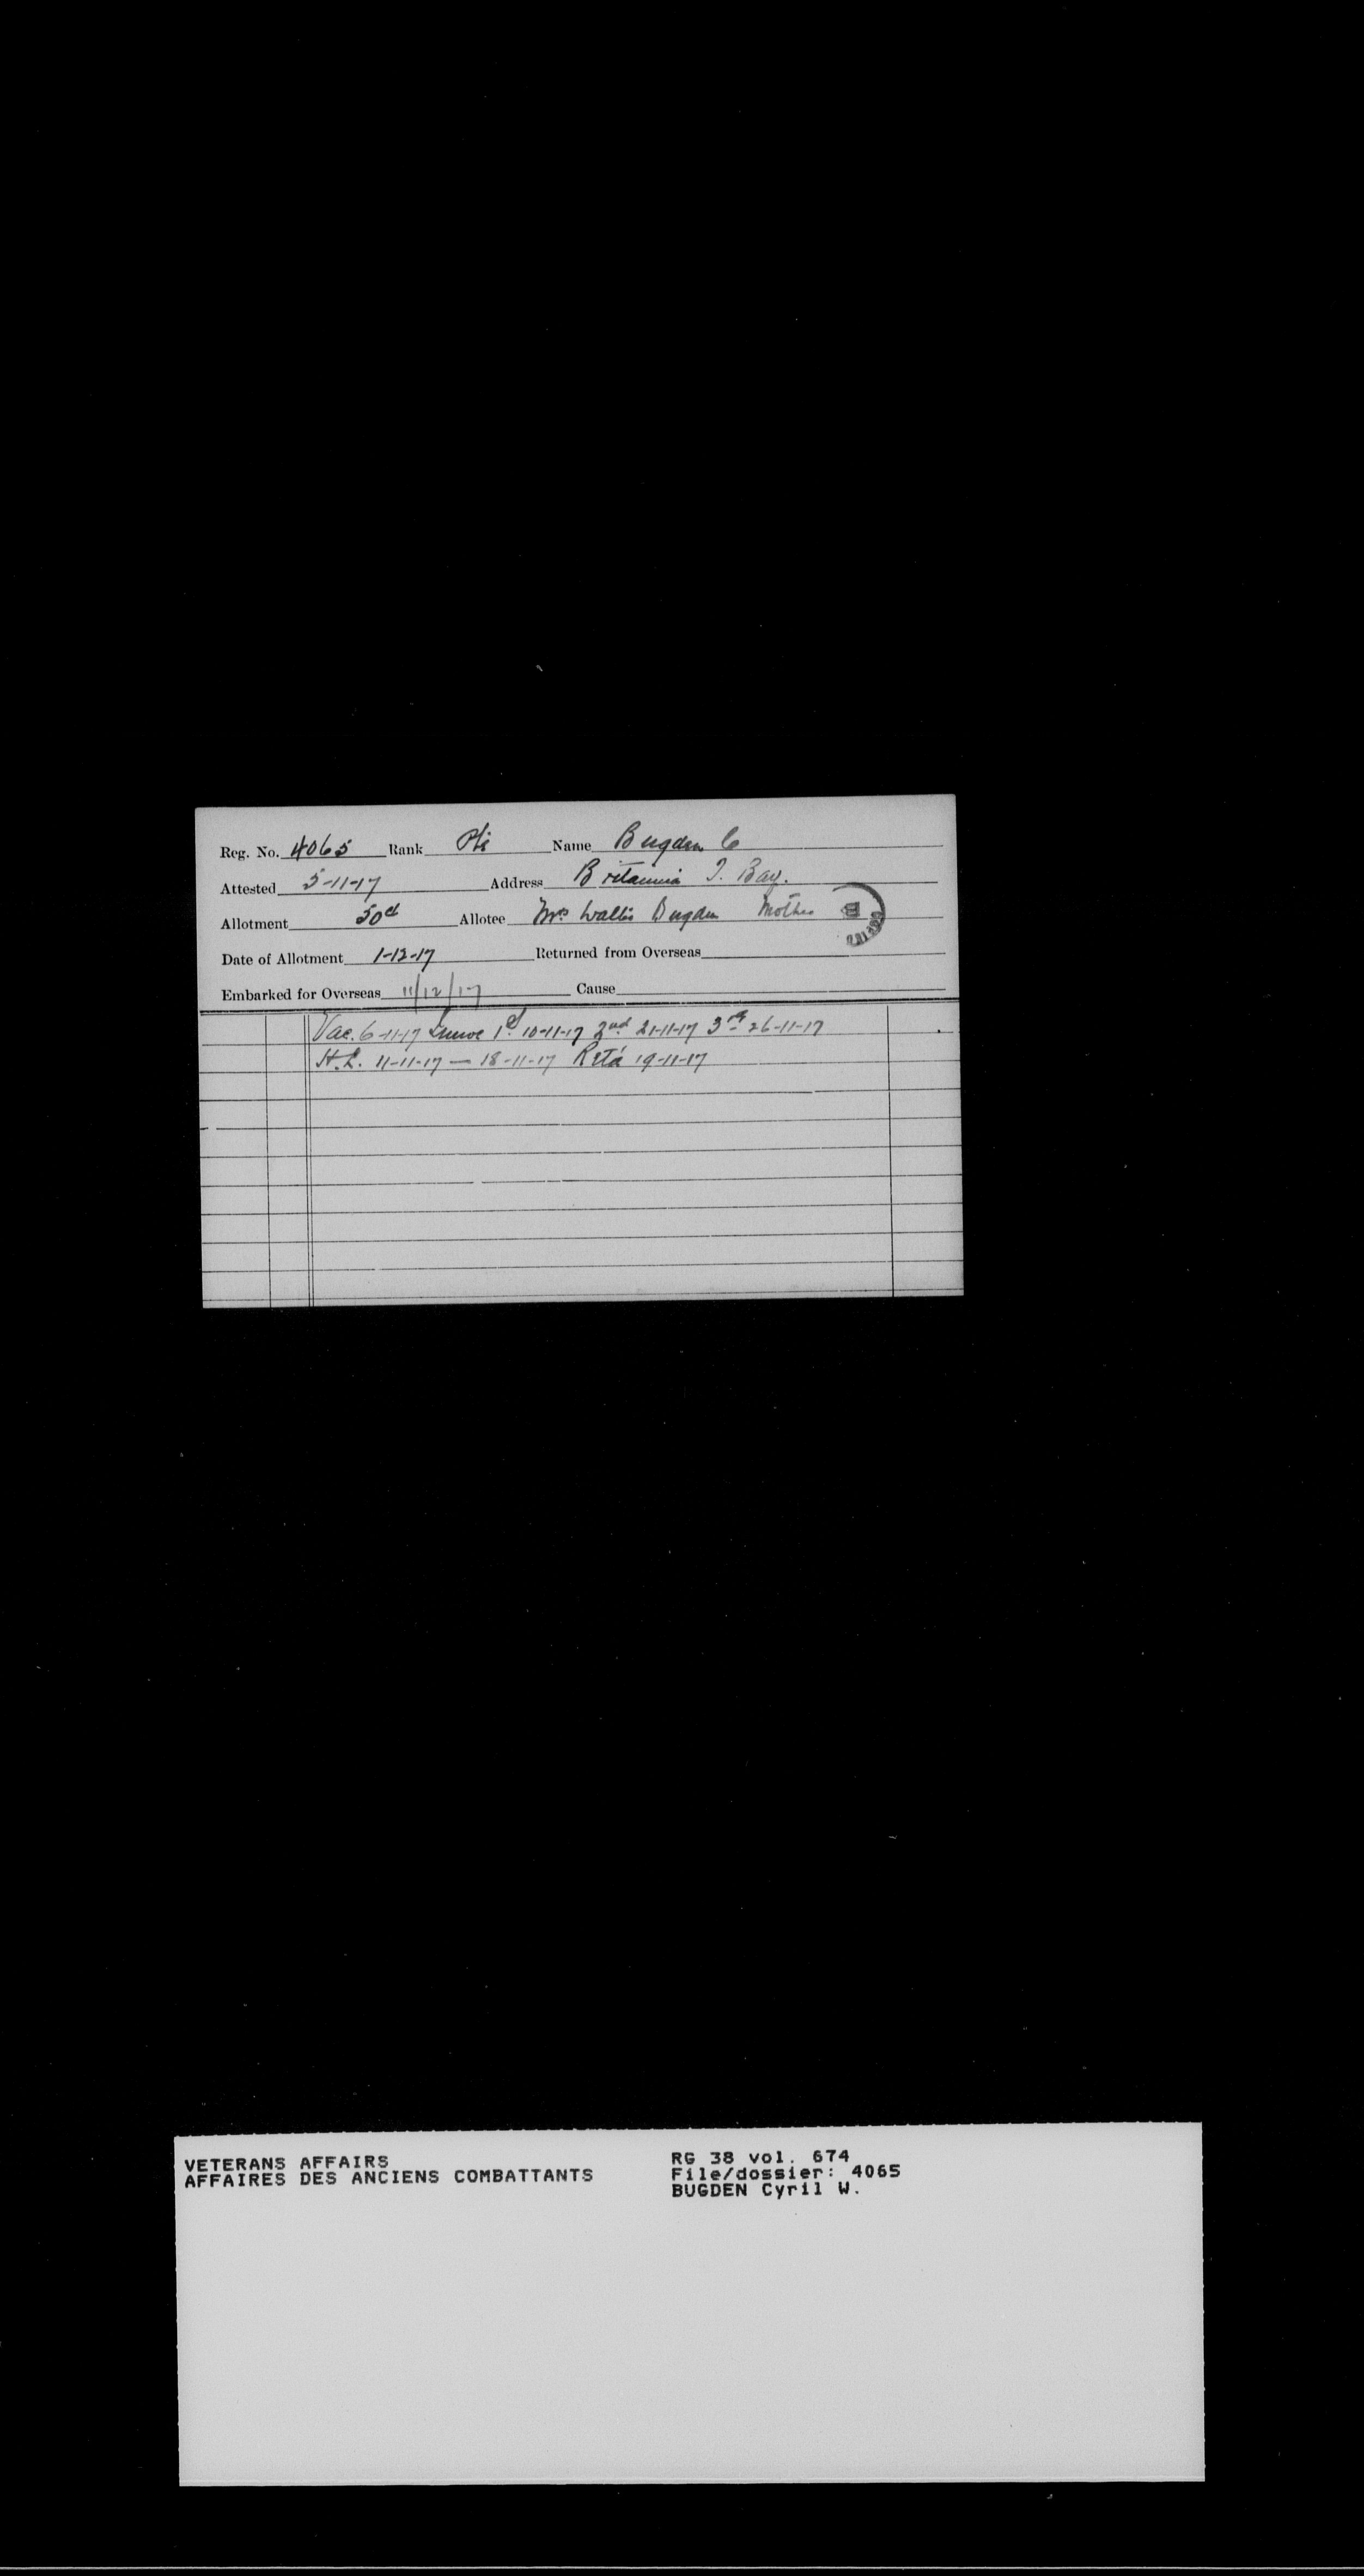 Reg. No. 4065 Rank Pte Name Bugden C
Attested 5-11-17 Address Britannia T. Bay.
Allotment 50¢ Allotee Mrs Wallis Bugden Mother
Date of Allotment 1-12-17 Returned from Overseas
Embarked for Overseas 11/12/17 Cause
Vac. 6-11-17 1st 10-11-17 2nd 21-11-17 3rd 26-11-17
H.L. 11-11-17 — 18-11-17 Retd 19-11-17
VETERANS AFFAIRS
AFFAIRES DES ANCIENS COMBATTANTS
RG 38 vol. 674
File/dossier: 4065
BUGDEN Cyril W.